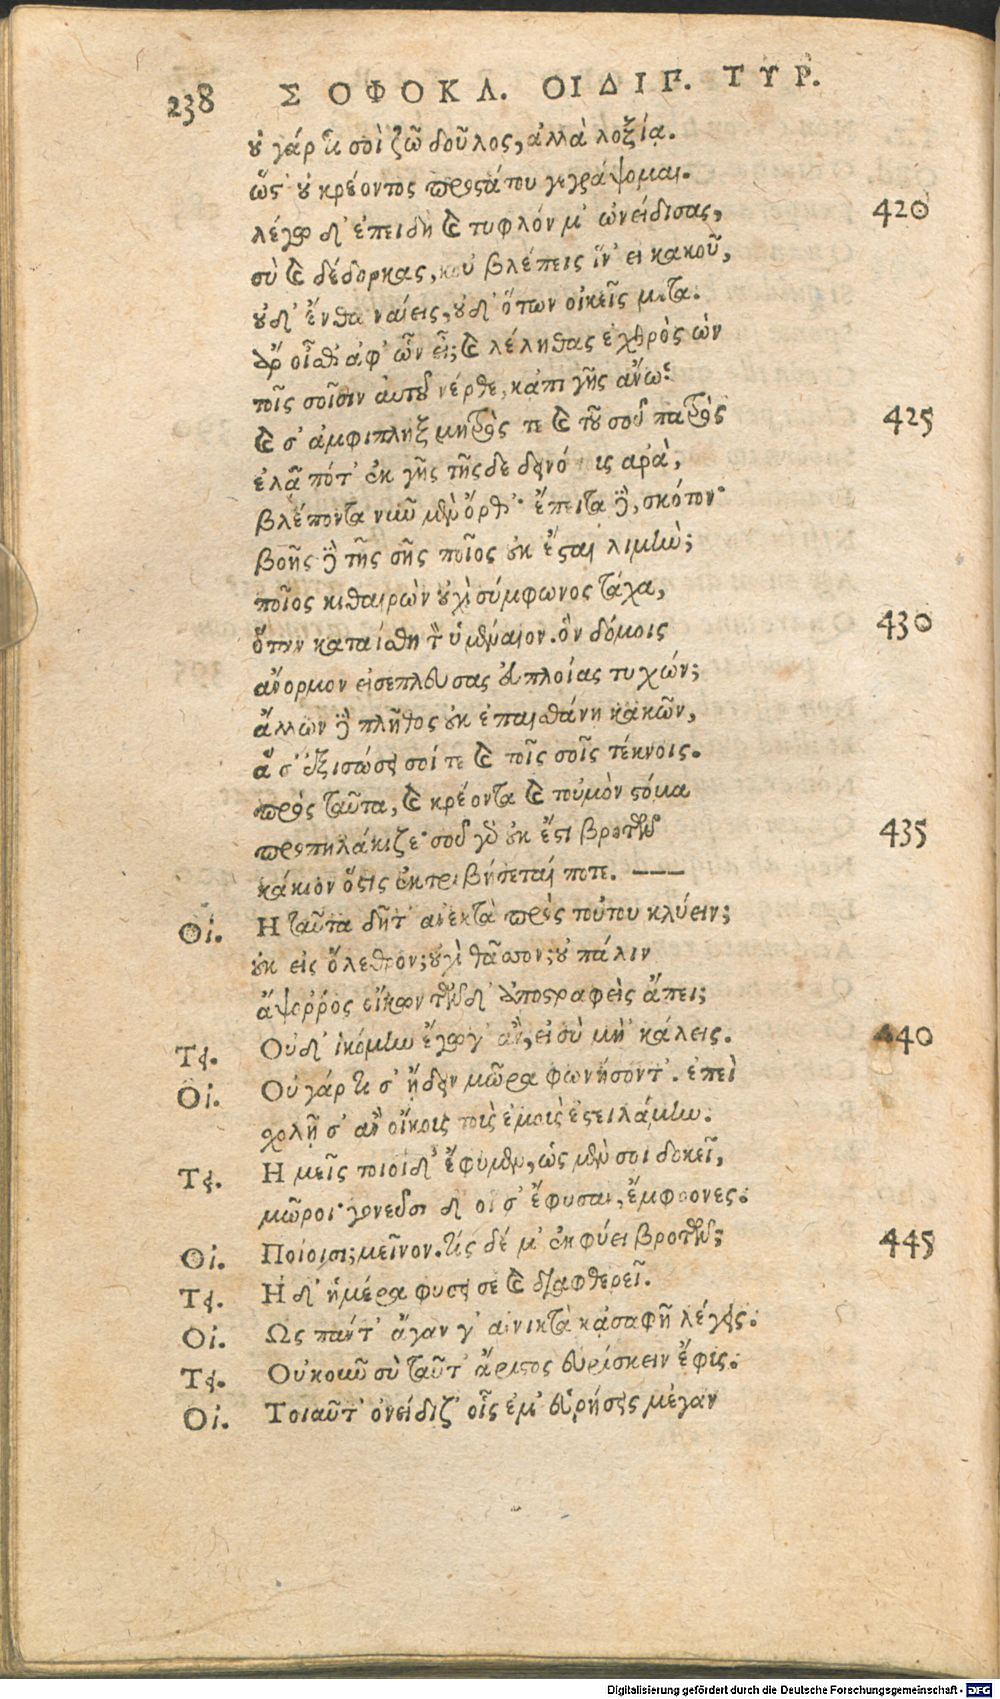 238 ΣΟΦΟΚΛ. ΟΙΔΙΠ. ΤΥΡ.
οὐ γάρ τι σοὶ ζῶ δοῦλος, ἀλλὰ λοξίᾳ.
ὥστ' οὐ κρέοντος προστάτου γεγράψομαι.
λέγω δ' ἐπειδὴ καὶ τυφλόν μ' ὠνείδισας, 420
σὺ καὶ δέδορκας, κοὐ βλέπεις ἵν' εἶ κακοῦ,
οὐδ' ἔνθα ναίεις, οὐδ' ὅτων οἰκεῖς μέτα.
ἆρ' οἶσθ' ἀφ' ὧν εἶ; καὶ λέληθας ἐχθρὸς ὢν
τοῖς σοῖσιν αὐτοῦ νέρθε, κἀπὶ γῆς ἄνω·
καὶ σ' ἀμφιπλὴξ μητρός τε καὶ τοῦ σοῦ πατρὸς 425
ἐλᾷ πότ' ἐκ γῆς τῆσδε δεινόπους ἀρὰ,
βλέποντα νῦν μὲν ὄρθ'· ἔπειτα δὲ, σκότον·
βοῆς δὲ τῆς σῆς ποῖος οὐκ ἔσται λιμὴν;
ποῖος κιθαιρὼν οὐχὶ σύμφωνος τάχα,
ὅταν καταίσθῃ τὸν ὑμέναιον. ὃν δόμοις 430
ἄνορμον εἰσέπλευσας εὐπλοίας τυχών;
ἄλλων δὲ πλῆθος οὐκ ἐπαισθάνῃ κακῶν,
ἅ σ' ἐξισώσει σοί τε καὶ τοῖς σοῖς τέκνοις.
πρὸς ταῦτα, καὶ κρέοντα καὶ τοὐμὸν στόμα
προπηλάκιζε· σοῦ γὰρ οὐκ ἔστι βροτῶν 435
κάκιον ὅστις ἐκτριβήσεταί ποτε. ———
Οἰ. Η ταῦτα δῆτ' ἀνεκτὰ πρὸς τούτου κλύειν;
οὐκ εἰς ὄλεθρον; οὐχὶ θᾶσσον; οὐ πάλιν
ἄψοῤῥος οἴκων τῶνδ' ἀποστραφεὶς ἄπει;
Τε. Οὐδ' ἱκόμην ἔγωγ' ἂν, εἰ σὺ μὴ 'κάλεις. 440
Οἰ. Οὐ γάρ τι σ' ᾔδειν μῶρα φωνήσοντ'. ἐπεὶ
σχολῇ σ' ἂν οἴκοις τοὺς ἐμοὺς ἐστειλάμην.
Τε. Ημεῖς τοιοίδ' ἔφυμεν, ὡς μὲν σοι δοκεῖ,
μῶροι· γονεῦσι δ' οἵ σ' ἔφυσαν, ἔμφρονες.
Οἰ. Ποίοισι; μεῖνον. τίς δέ μ' ἐκφύει βροτῶν; 445
Τε. Ηδ' ἡμέρα φύσει σε καὶ διαφθερεῖ.
Οἰ. Ως πάντ' ἄγαν γ' αἰνικτὰ κᾀσαφῆ λέγεις.
Τε. Οὐκοῦν σὺ ταῦτ' ἄριστος εὑρίσκειν ἔφυς.
Οἰ. Τοιαῦτ' ὀνείδιζ' οἷς ἔμ' εὑρήσεις μέγαν
Digitalisierung gefördert durch die Deutsche Forschungsgemeinschaft - DFG